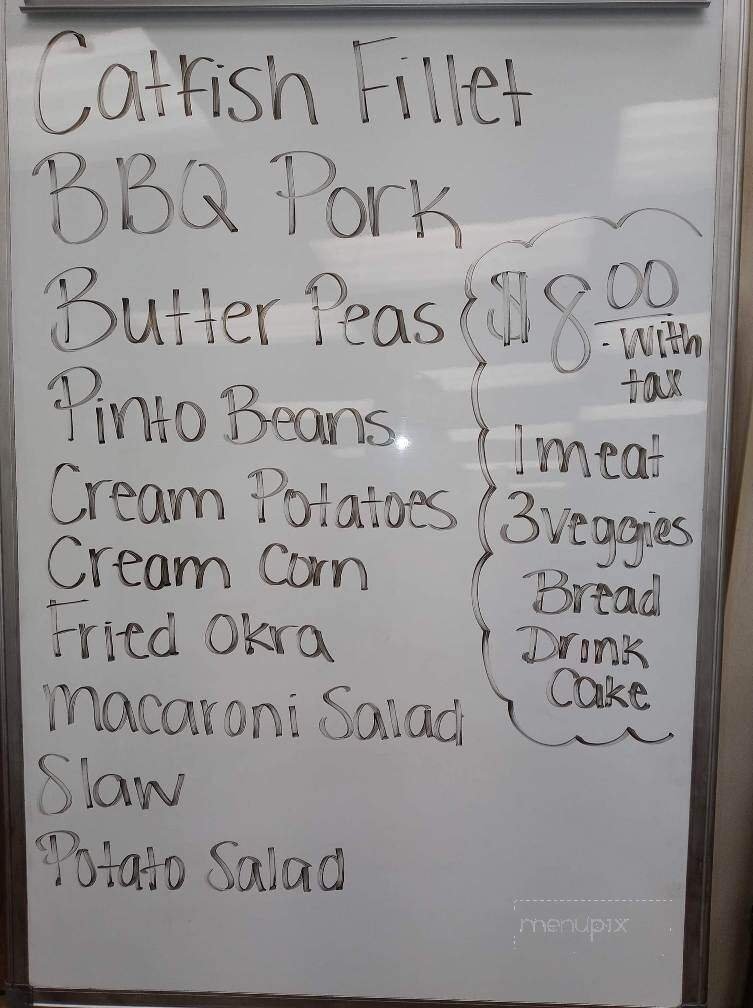 Catfish Fillet
BBQ Pork
Butter Peas
Pinto Beans
Cream Potatoes
Cream Corn
Fried Okra
Macaroni Salad
Slaw
Potato Salad
$8.00
- With
tax
1 meat
3 veggies
Bread
Drink
Cake
menupix